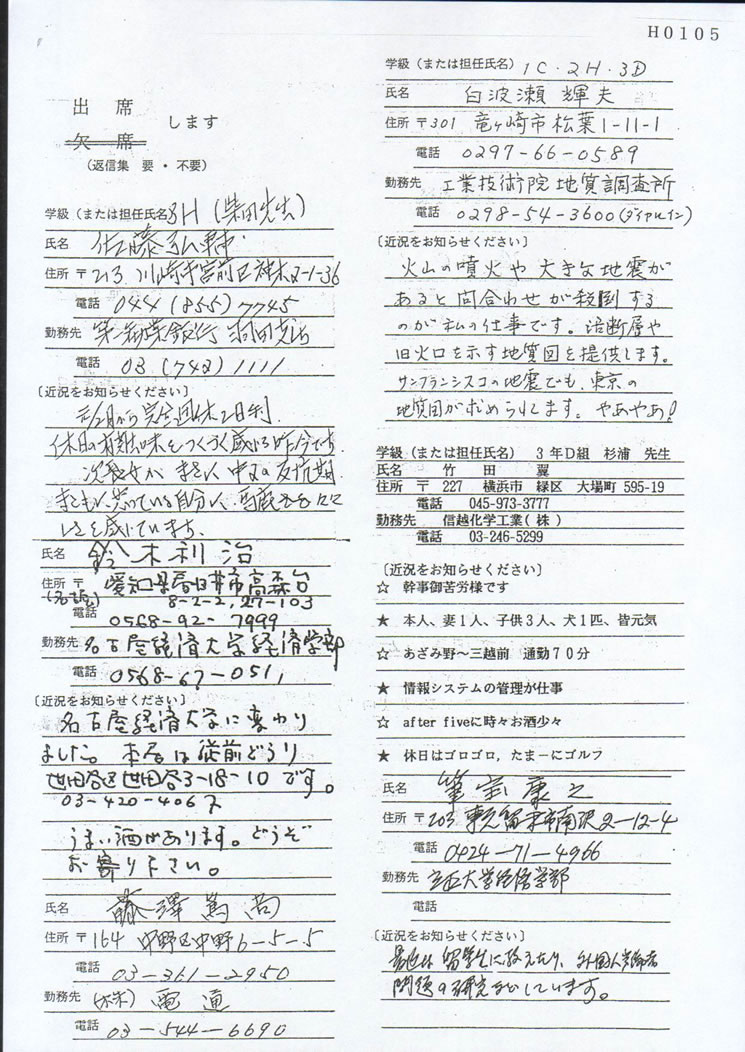 H0105
出席
欠席
します
(返信集 要・不要)
学級(または担任氏名) 3H (柴田先生)
氏名 佐藤
住所 〒213. 川崎市宮前区神木2-1-36
電話 044 (855) 7745
勤務先 第一勧業銀行 羽田支店
電話 03 (742) 1111
〔近況をお知らせください〕
元/2月から完全週休2日制.
休日の有難味をつくづく感じる昨今です.
次長女が まさに 中2の反抗期
しさを感じています.
氏名 鈴木利治
住所 〒 愛知県春日井市高森台
(名古屋) 8-2-2, 27-103
電話 0568-92-7999
勤務先 名古屋経済大学経済学部
電話 0568-67-0511
〔近況をお知らせください〕
名古屋経済大学に変わり
ました。本居は従前どうり
世田谷区世田谷3-18-10 です。
03-420-4067
うまい酒があります。どうぞ
お寄り下さい。
氏名 藤澤篤尚
住所 〒164 中野区中野6-5-5
電話 03-361-2950
勤務先 (株) 電通
電話 03-544-6690
学級(または担任氏名) 1C・2H・3D
氏名 白波瀬輝夫
住所 〒301 竜ヶ崎市松葉1-11-1
電話 0297-66-0589
勤務先 工業技術院地質調査所
電話 0298-54-3600(ダイアルイン)
〔近況をお知らせください〕
火山の噴火や大きな地震が
あると問合わせが殺到する
のが私の仕事です。活断層や
旧火口を示す地質図を提供します。
サンフランシスコの地震でも、東京の
地質図が求められます。やあやあ!
学級(または担任氏名) 3年D組 杉浦 先生
氏名 竹田 翼
住所 〒 227 横浜市 緑区 大場町 595-19
電話 045-973-3777
勤務先 信越化学工業(株)
電話 03-246-5299
〔近況をお知らせください〕
☆ 幹事御苦労様です
★ 本人、妻1人、子供3人、犬1匹、皆元気
☆ あざみ野~三越前 通勤70分
★ 情報システムの管理が仕事
☆ after fiveに時々お酒少々
★ 休日はゴロゴロ, たまーにゴルフ
氏名 筆宝康之
住所 〒203 東久留米市南沢2-12-4
電話 0424-71-4966
勤務先 立正大学経済学部
電話
〔近況をお知らせください〕
最近は留学生に教えたり、外国人労働者
問題の研究をしています。